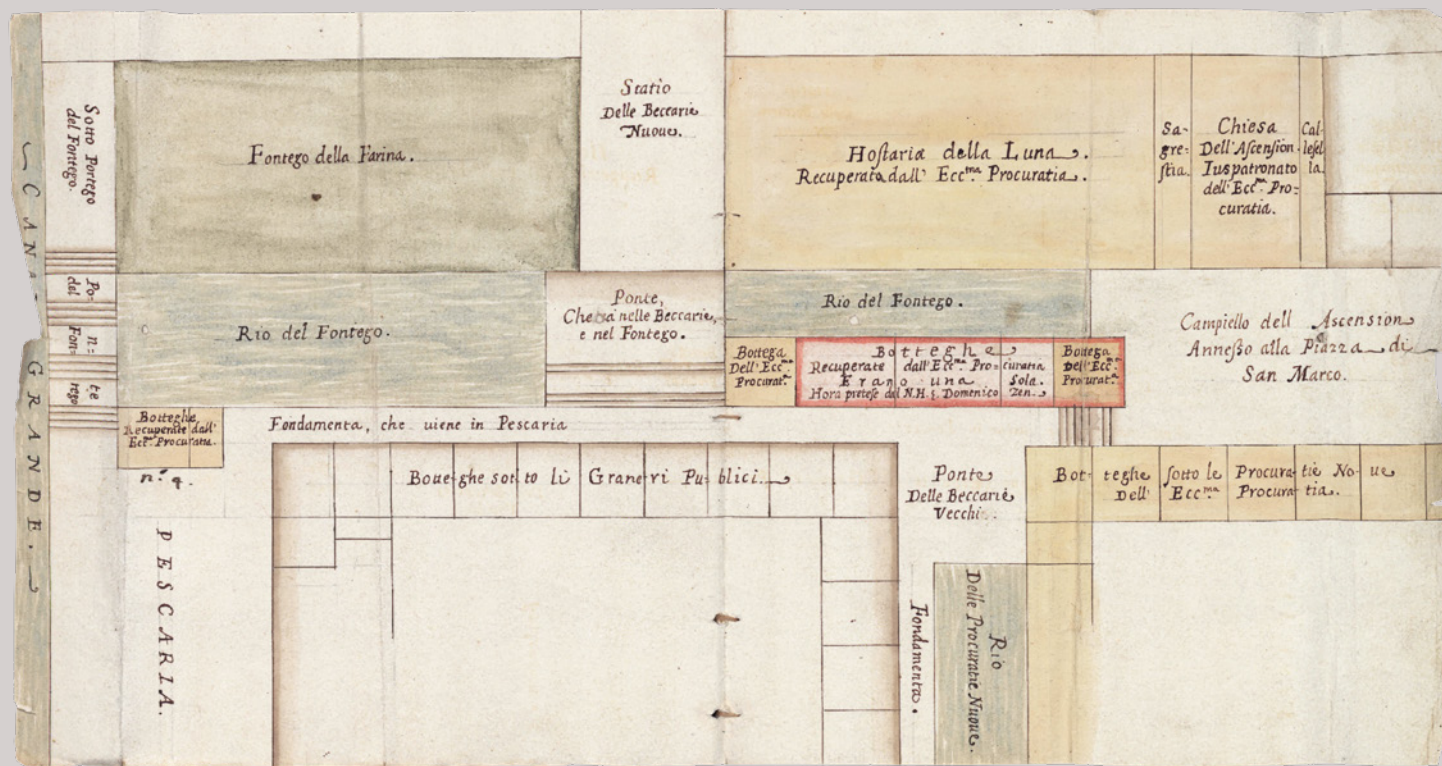 CANA GRANDE.
Sotto Portego
del Fontego.
Fontego della Farina.
Statio
Delle Beccarie
Nuove.
Hostaria della Luna.
Recuperata dall' Ecc.ma Procuratia.
Sa=
gre=
stia.
Chiesa
Dell'Ascension
Iuspatronato
dell'Ecc.ma Pro=
curatia.
Cal=
lesel
la.
Po= n= te
del Fon= tego
Rio del Fontego.
Ponte,
Che va nelle Beccarie,
e nel Fontego.
Rio del Fontego.
Campiello dell Ascension
Annesso alla Piazza di
San Marco.
Bottega
Dell'Ecc.ma
Procurat.a
Botteghe
Recuperate dall'Ecc.ma Procuratia
Erano una Sola.
Hora pretese dal N.H. s. Domenico Zen.
Bottega
Dell'Ecc.ma
Procurat.a
Botteghe
Recuperate dall'
Ecc.ma Procuratia.
n.o 4.
Fondamenta, che uiene in Pescaria
Boteghe sotto li Graneri Publici.
Ponte
Delle Beccarie
Vecchie.
Botteghe sotto le Procuratie Noue
Dell' Ecc.ma Procuratia.
PESCARIA.
Fondamenta.
Rio
Delle Procuratie Nuove.